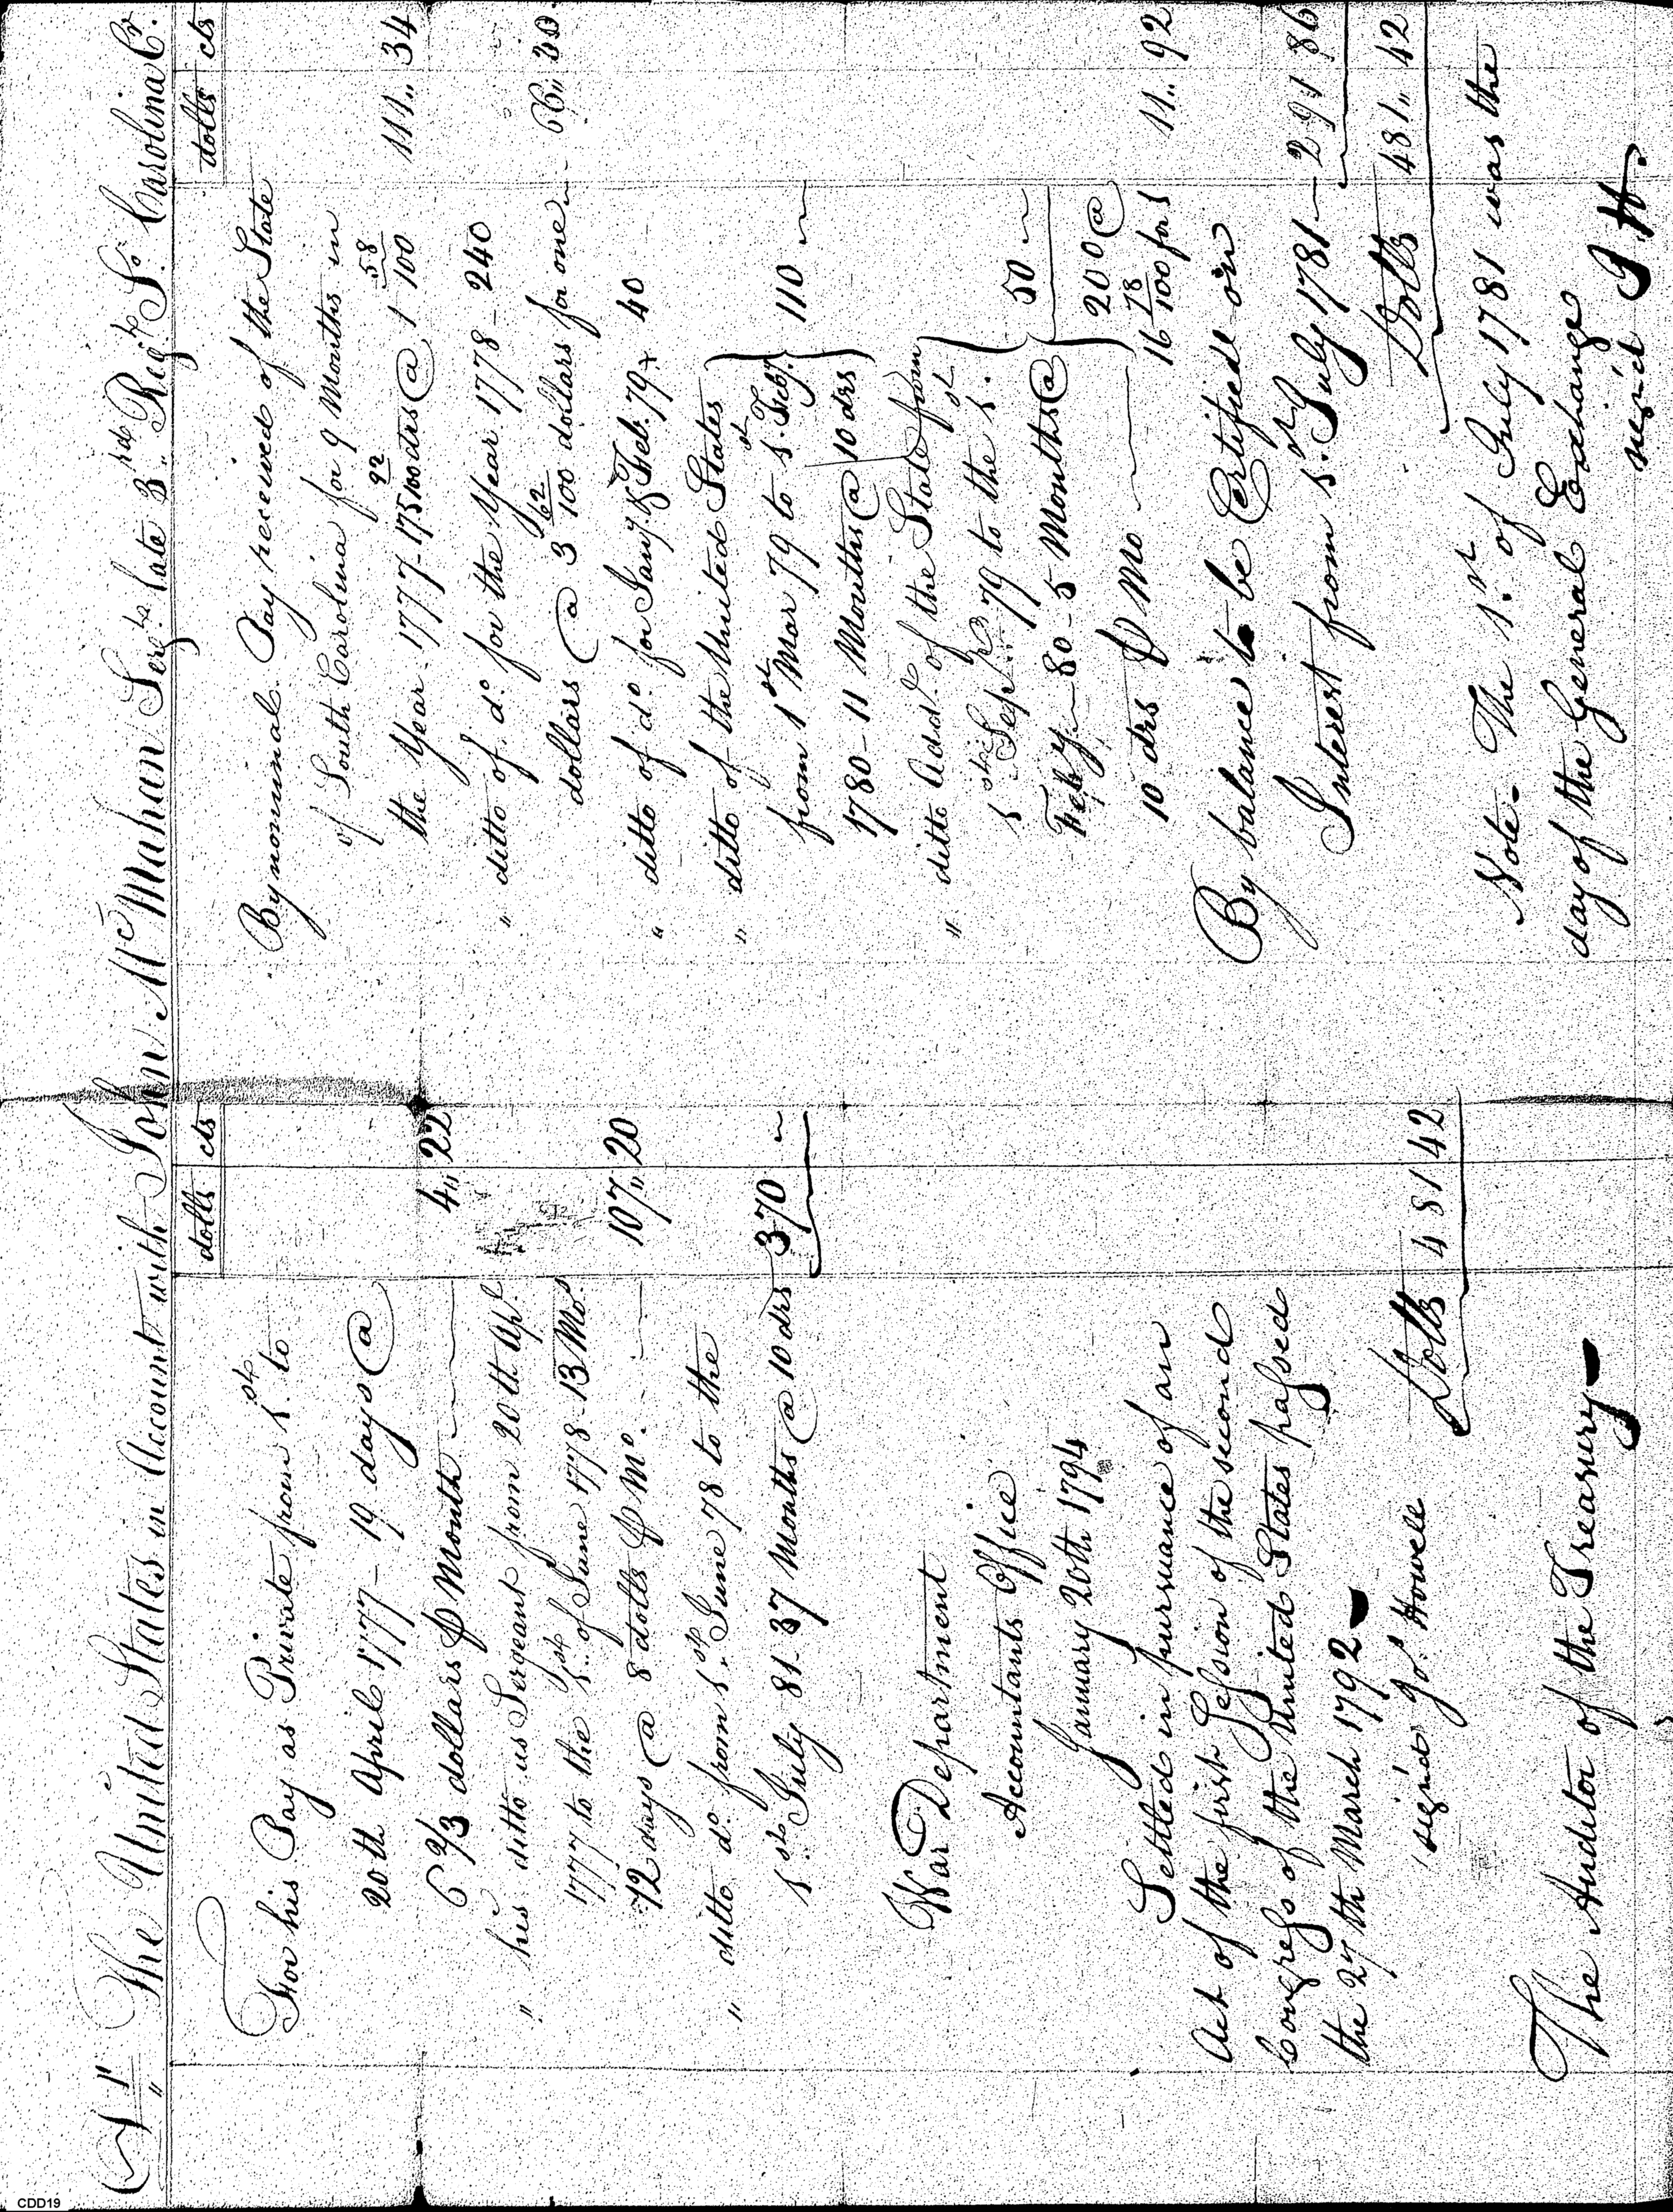 Dr The United States in Account with John McMahan Sergt. late 3rd. Regt. So. Carolina Cr.
dolls cts
For his Pay as Private from 1st. to
20th April 1777 - 19 days @
6 2/3 dollars ⅌ Month 4,, 22
" his ditto as Sergeant from 20th Apl.
1777 to the 1st. of June 1778 - 13 Mos.
12 days @ 8 dolls ⅌ Mo. 107,, 20
" ditto do. from 1st. June 78 to the
1st. July 81. 37 Months @ 10 drs 370
War Department
Accountants Office
January 20th 1794
Settled in pursuance of an
Act of the first Session of the second
Congress of the United States passed
the 27th March 1792
sign'd Jos. Howell
Dolls 481 42
The Auditor of the Treasury
dolls cts
" By nominal Pay received of the State
of South Carolina for 9 Months in
the Year 1777 - 175 92/100 drs @ 1 58/100 111,, 34
" ditto of do. for the Year 1778 - 240
dollars @ 3 62/100 dollars for one 66,, 30
" ditto of do. for Jany. & Feb. 79 40
" ditto of the United States
from 1st Mar 79 to 1st. Feby.
1780 - 11 Months @ 10 drs 110
" ditto Add. of the State from
1st Sepr. 79 to the 1st.
Feby 80 - 5 Months @ 50
10 drs ⅌ Mo 200 @
16 78/100 for 1 11,, 92
By balance to be Certified on
Interest from 1st. July 1781 291 86
Dolls 481,, 42
Note. The 1st. of July 1781 was the
day of the General Exchange
sign'd J. H.
CDD19